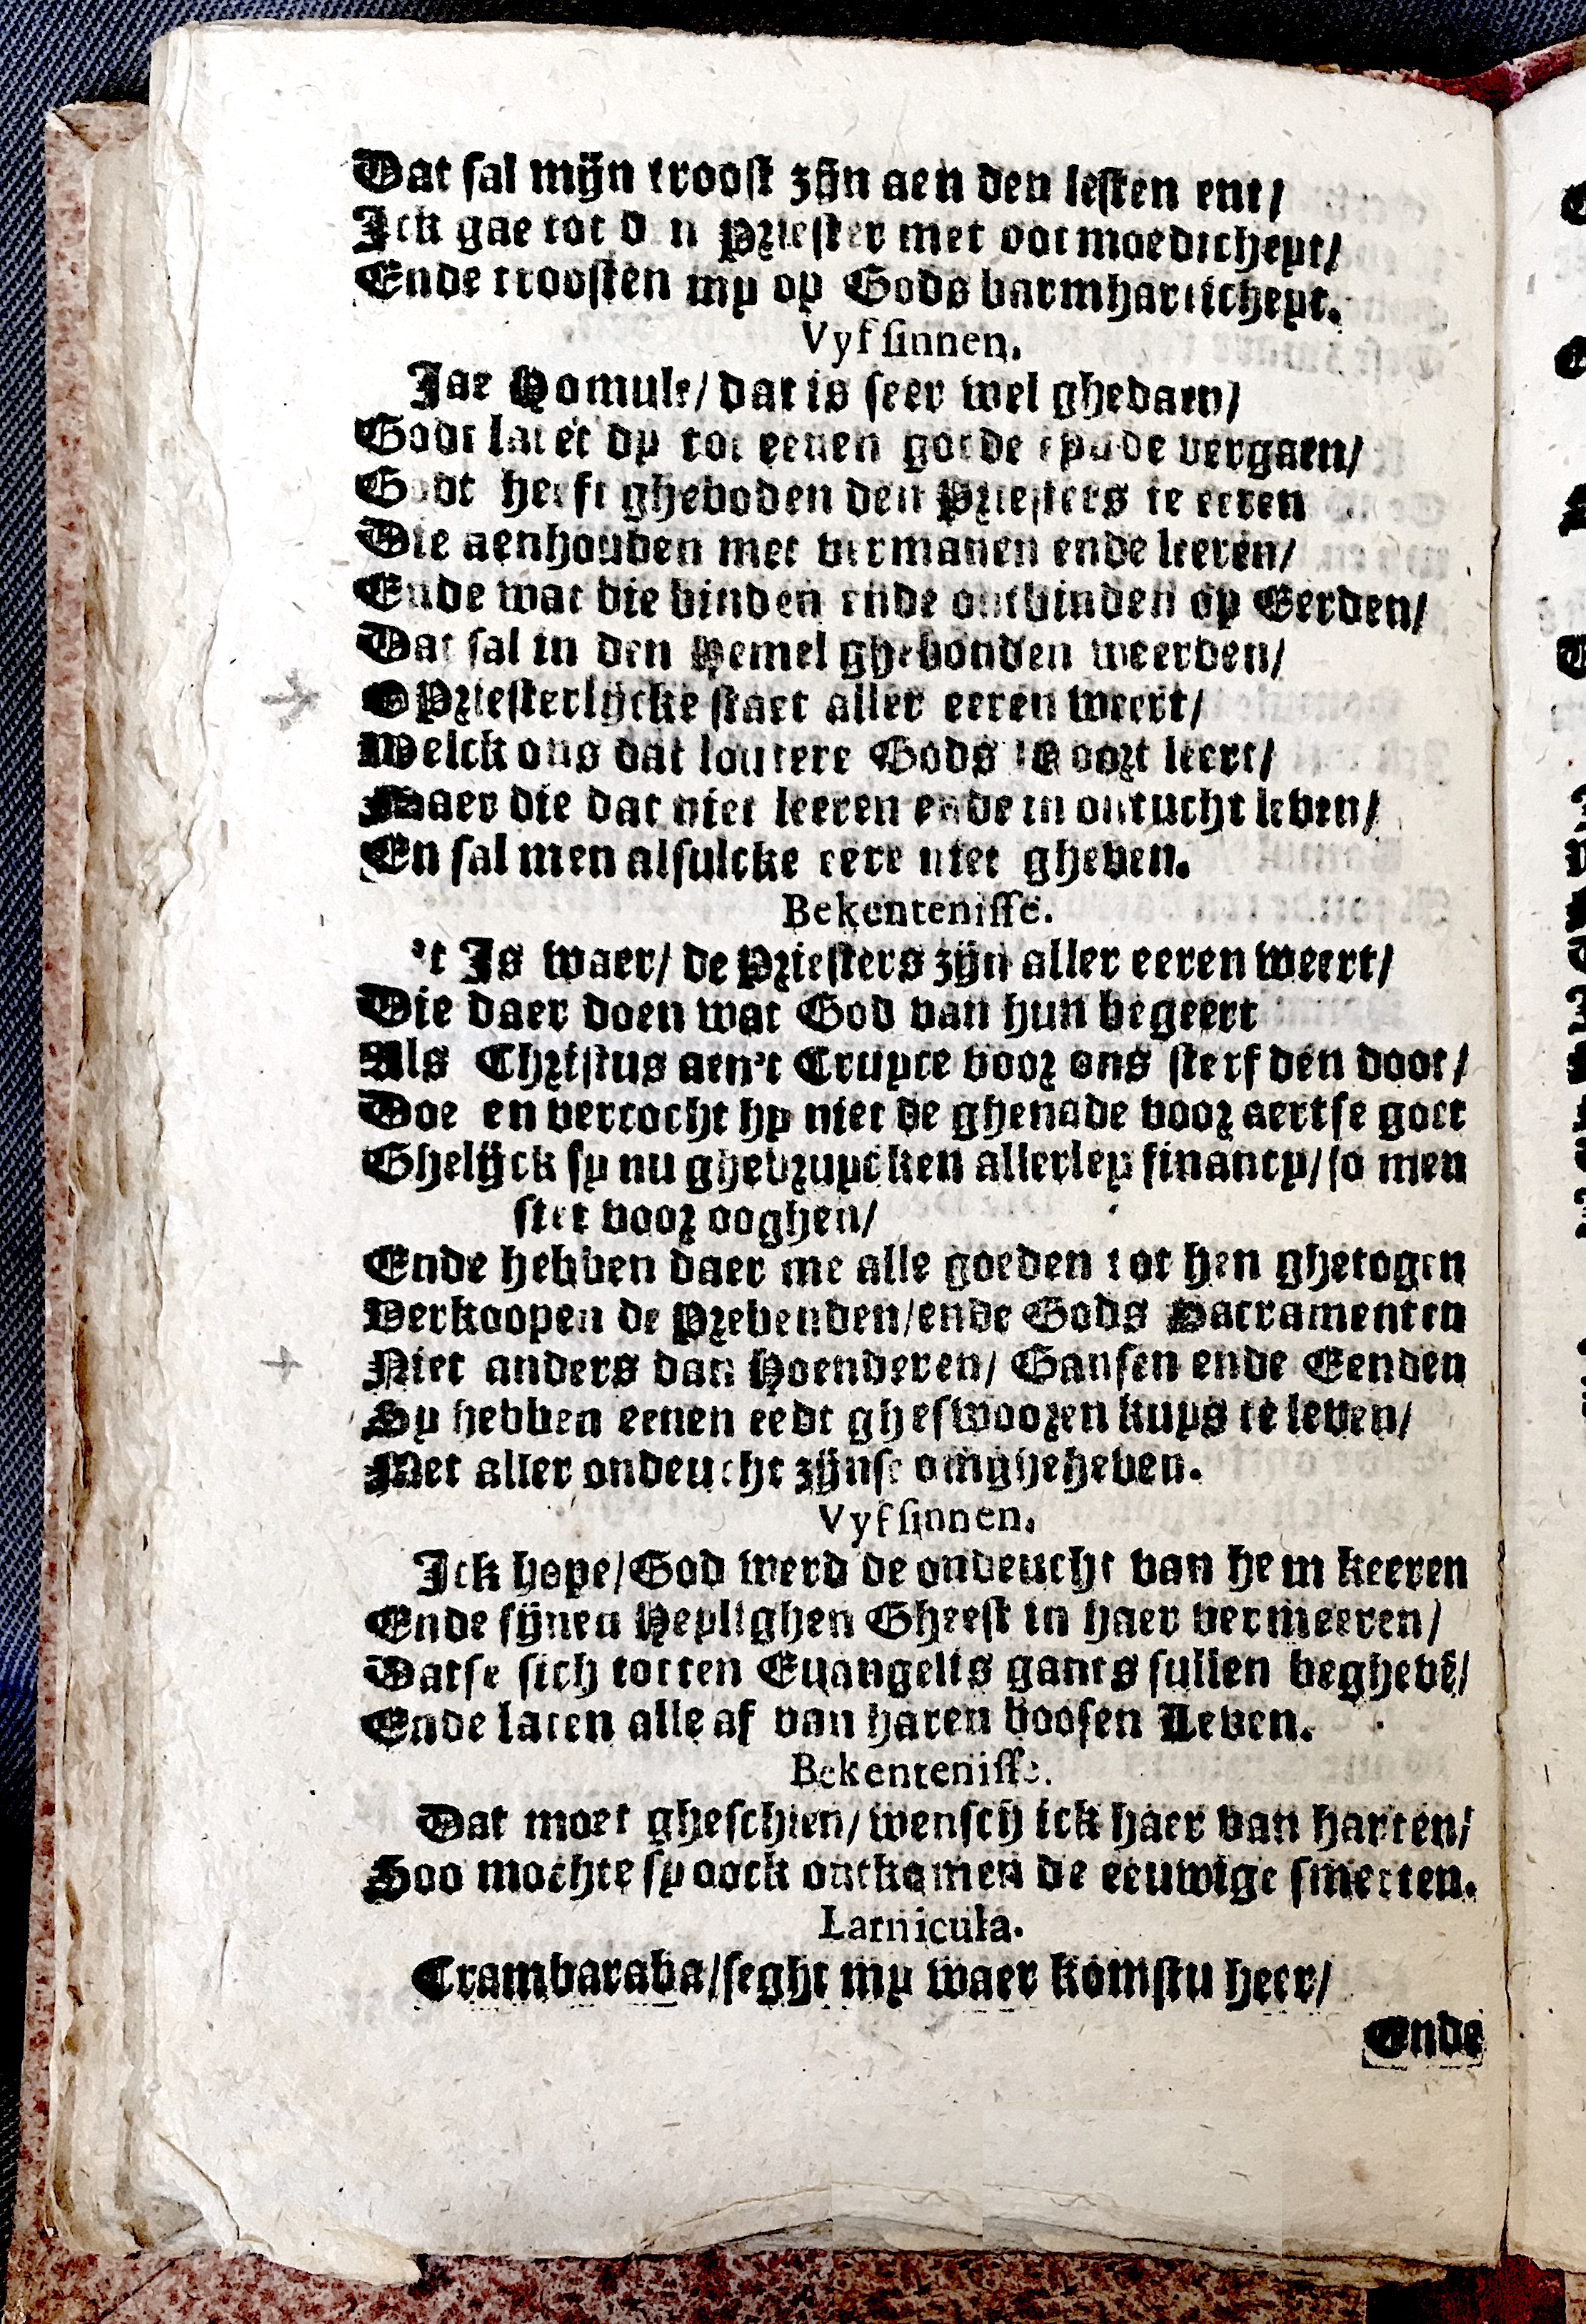 Dat sal mijn troost zijn aen den lesten ent/
Ick gae tot den Priester met ootmoedicheyt/
Ende troosten my op Gods barmhartichept.
Vyf sinnen.
Jae Homule/ dat is seer wel ghedaen/
Godt laet et dy tot eenen goede eynde vergaen/
Godt heeft gheboden den Priesters te eeren
Die aenhouden met vermanen ende leeren/
Ende wat die binden ende ontbinden op Eerden/
Dat sal in den Hemel ghebonden weerden/
O Priesterlijcke staet aller eeren weert/
Welck ons dat loutere Gods Woort leert/
Maer die dat niet leeren ende in ontucht leven/
En sal men alsulcke eere niet gheven.
Bekentenisse.
't Is waer/ de Priesters zijn aller eeren weert/
Die daer doen wat God van hun begeert
Als Christus aen't Cruyce voor ons sterf den doot/
Doe en vercocht hy niet de ghenade voor aertse goet
Ghelijck sy nu ghebruycken allerley financy/ so men
siet voor ooghen/
Ende hebben daer me alle goeden tot hen ghetogen
Verkoopen de Prebenden/ ende Gods Sacramenten
Niet anders dan Hoenderen/ Gansen ende Eenden
Sy hebben eenen eedt gheswooren kuys te leven/
Met aller ondeucht zijnse omgheheven.
Vyf sinnen.
Ick hope/ God werd de ondeucht van hem keeren
Ende sijnen Heylighen Gheest in haer vermeeren/
Datse sich totten Euangelis gants sullen beghevē/
Ende laten alle af van haren boosen Leven.
Bekentenisse.
Dat moet gheschien/ wensch ick haer van harten/
Soo mochte sy oock ontkomen de eeuwige smerten.
Larnicula.
Crambaraba/ seght my waer komstu heer/
Ende